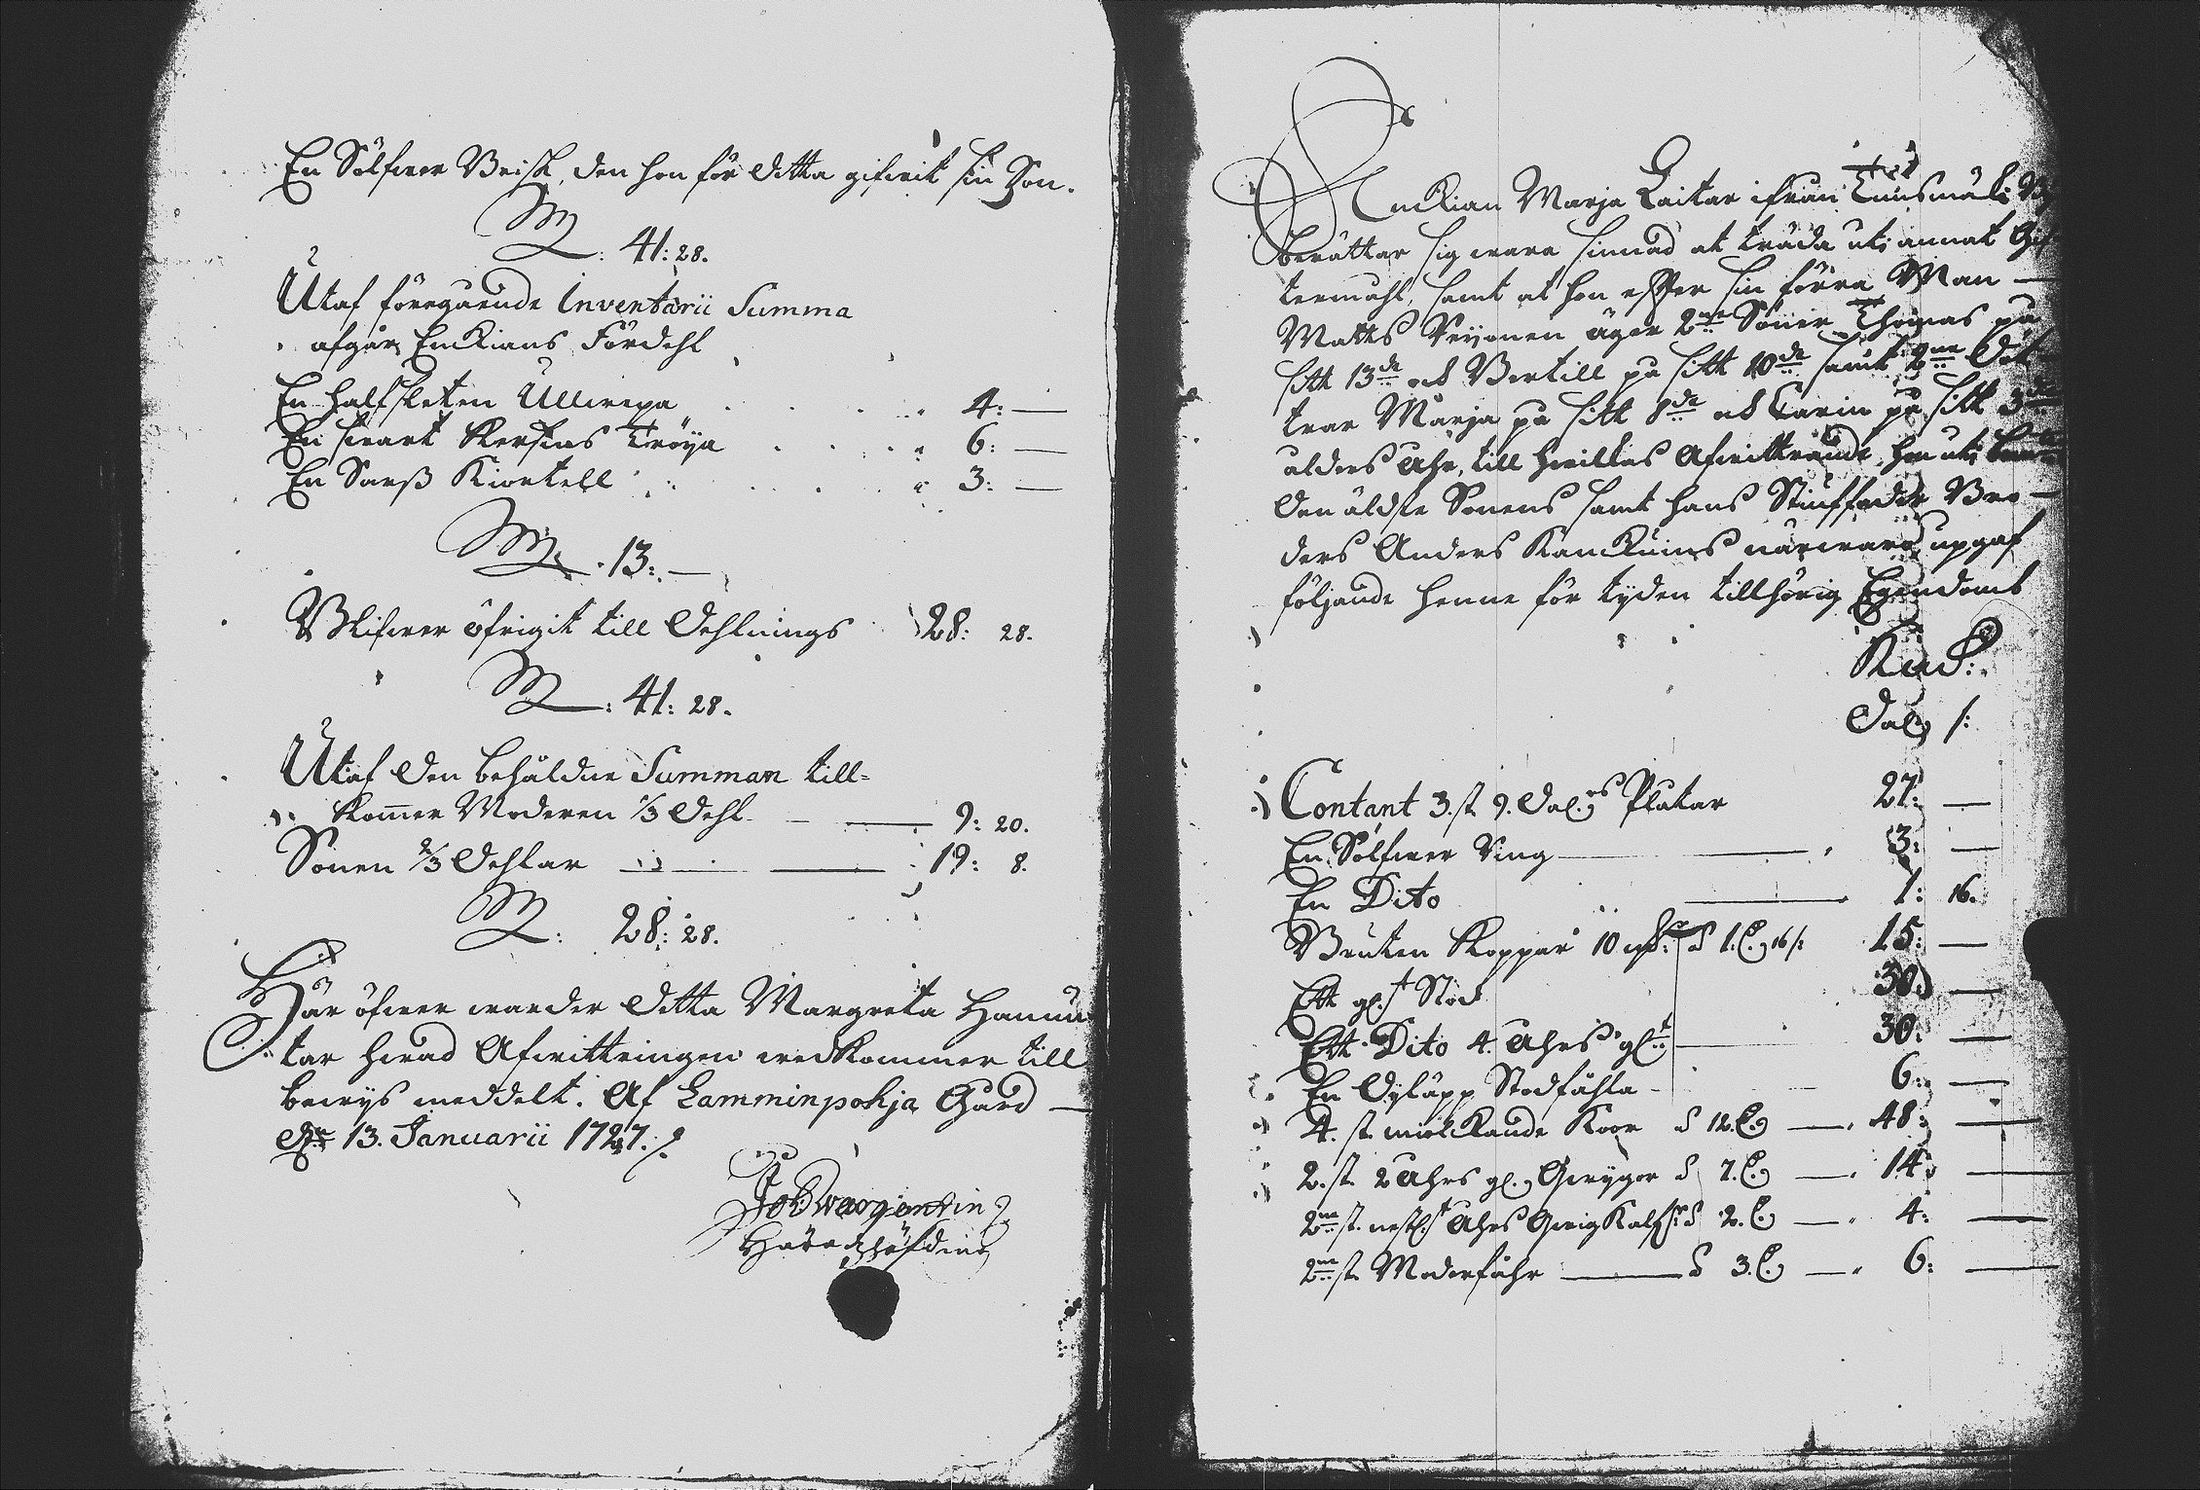 En Sölfwer Brisk, den hon för detta gifwit sin Son.
41: 28.
Utaf föregående Inventarii Summa
afgår Enckians Fördehl
En halfsleten Ullwepa 4: —
En swart Kersins Tröija 6: —
En Sarß Kiortell 3: —
13: —
Blifwer öfrigit till Dehlnings 28: 28.
41: 28.
Utaf den behåldne Summan till-
kommer Moderen 1/3 Dehl — 9: 20.
Sonen 2/3 Dehlar — 19: 8.
28: 28.
Här öfwer warder detta Margreta Hannu
tar hwad Afwittringen wedkommer till
bewys meddelt. Af Lamminpohja Gård —
den 13. Januarii 1727.
Job Wargentin
Häradzhöfding
Enckian Marja Laitar ifrån
berättar sig wara sinnad at träda uti annat Gif
termahl, samt at hon efter sin förra Man —
Matts Veijonen äger 2ne Söner Thomas på
sitt 13de och Bertill på sitt 10de samt 2ne Döt
trar Marja på sitt 8de och Carin på sitt 3de
alders åhr, till hwilkas Afwittrande hon uti
den äldste Sonens samt hans Stiuffader Bro-
ders Anders Kanckuins närwaro, upgaf
följande henne för tyden tillhörig Egendomb
Dal. s:
Contant 3. st. 9. Dal.rs Plåtar 27: —
En Sölfwer Ring — 3: —
En Dito — 1: 16.
Bruten Koppar 10 â 1. 16 s: 15: —
Ett gl.t Stod 30: —
Ett Dito 4. åhrs gl.t — 30: —
En Stodfåhla — 6: —
4. st. miölckande Koor â 12. — 48: —
2. st. 2 åhrs gl. Qwygor â 7. — 14: —
2ne st. åhrs Qwig Kalfr â 2. — 4: —
2ne st. Moderfåhr — â 3. — 6: —